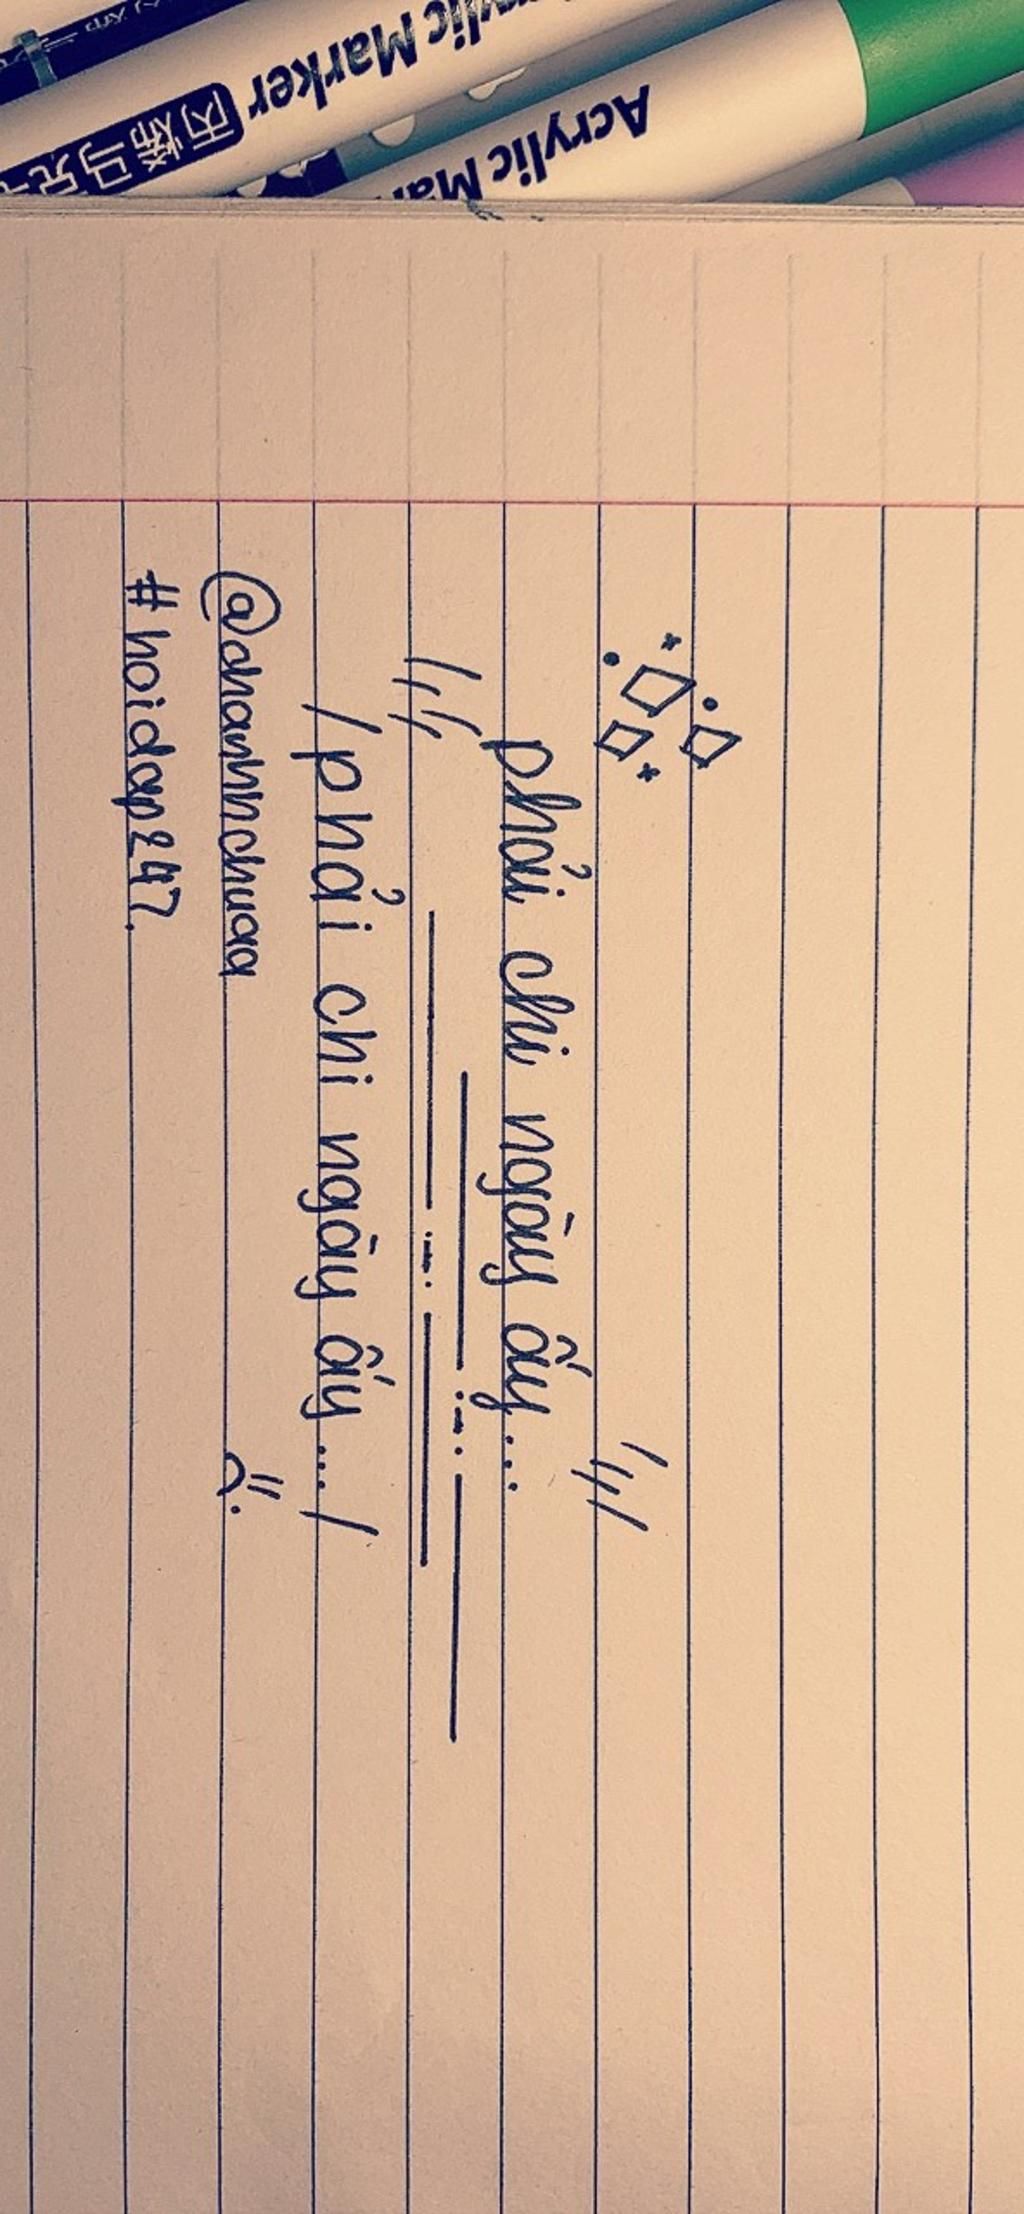 Acrylic Marker
丙烯马克
Acrylic Mar
phải chi ngày ấy...
/phải chi ngày ấy.../
@chanhnchuaa
#hoidap247.